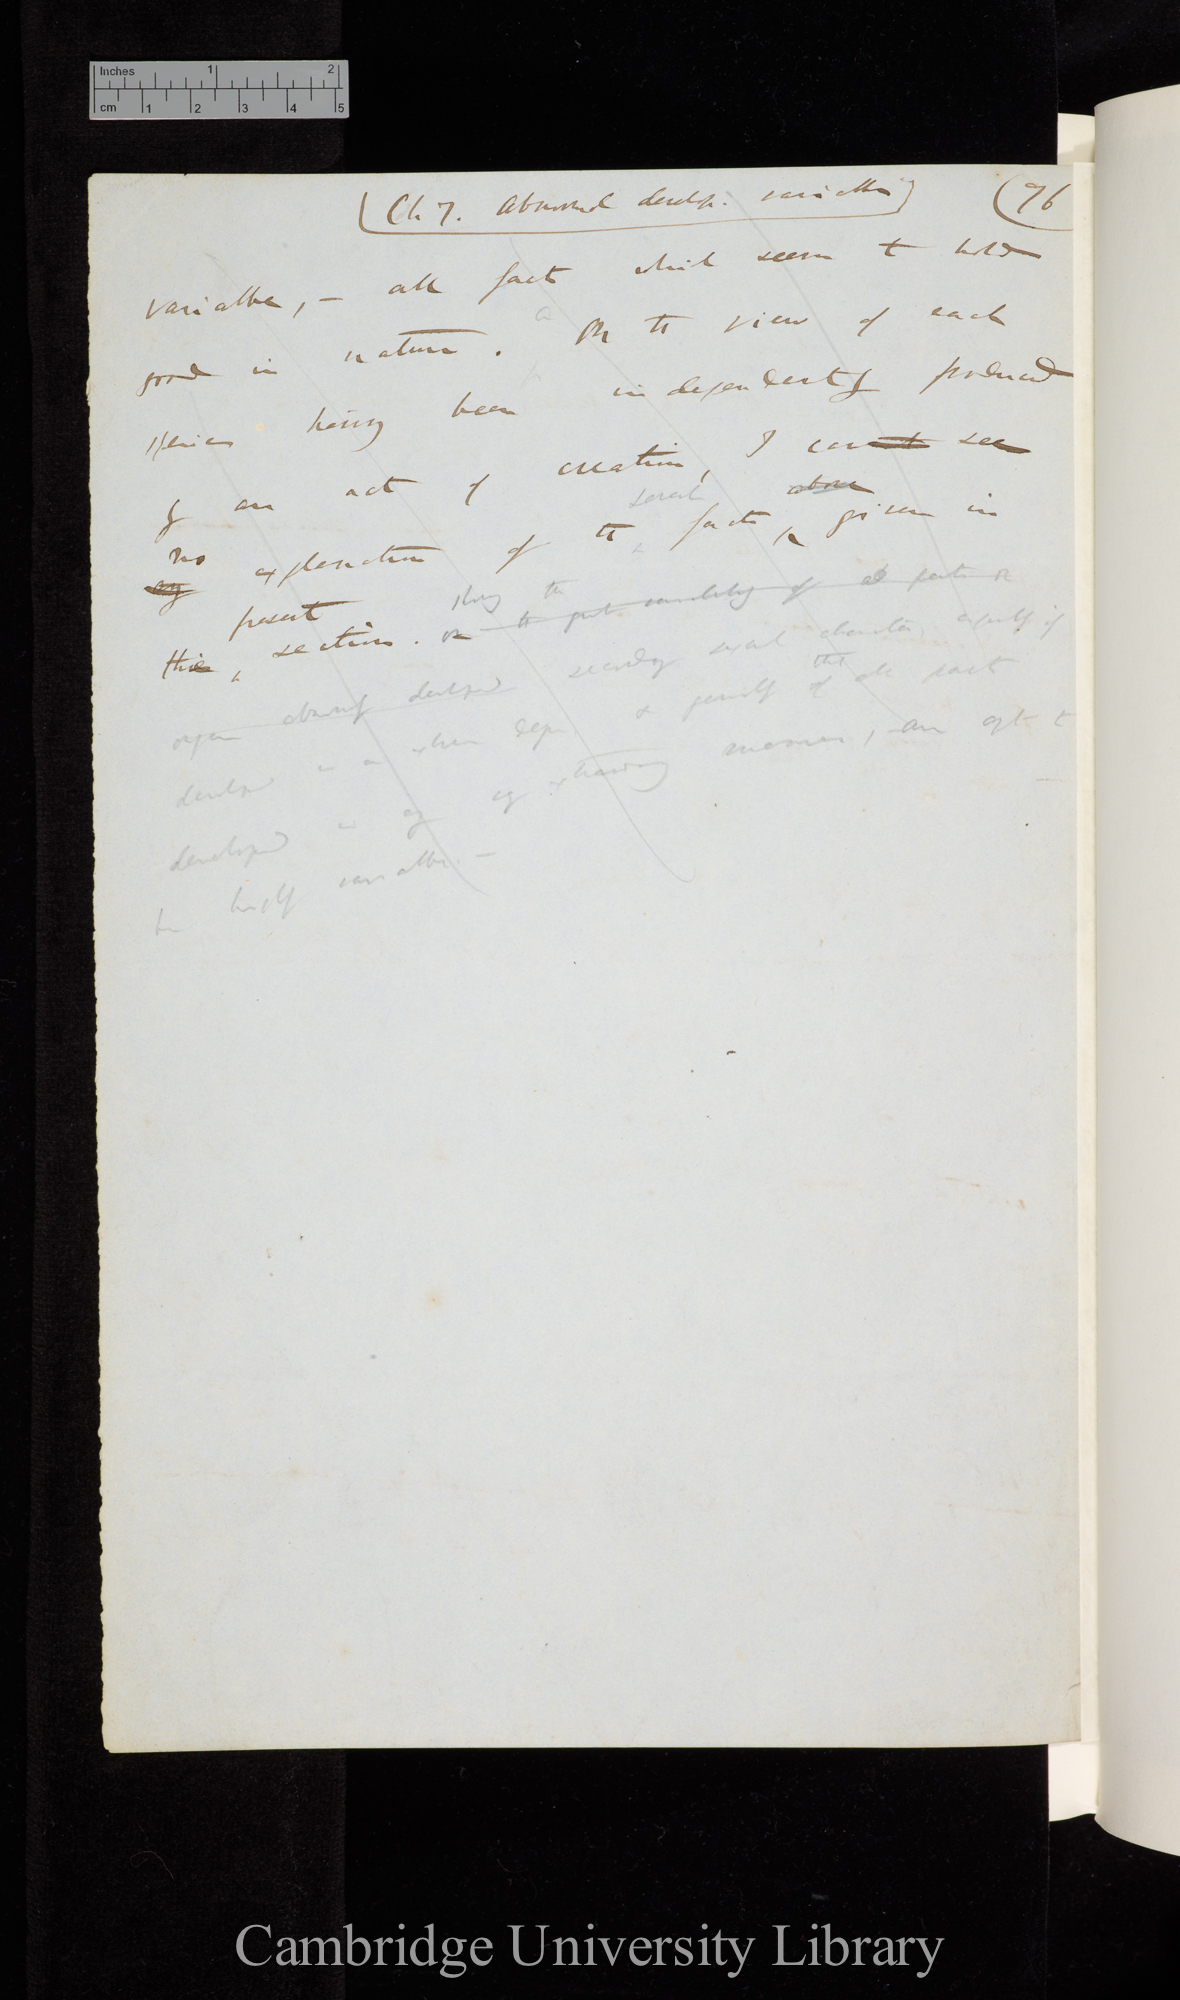 Inches 1 2
cm 1 2 3 4 5
(Ch 7. Abnormal develp. variable) (96
variable, — all facts which seem to hold
good in nature. On the view of each
species having been independently produced
by an act of creation, I cannot see
several above
no explanation of the facts, given in
any
present why the
this, section. or the great variability of all parts or
organ abnormally developed secondary sexual characters, especially if
developed in a
developed in any extraordinary manner, are apt to
be highly variable. —
Cambridge University Library